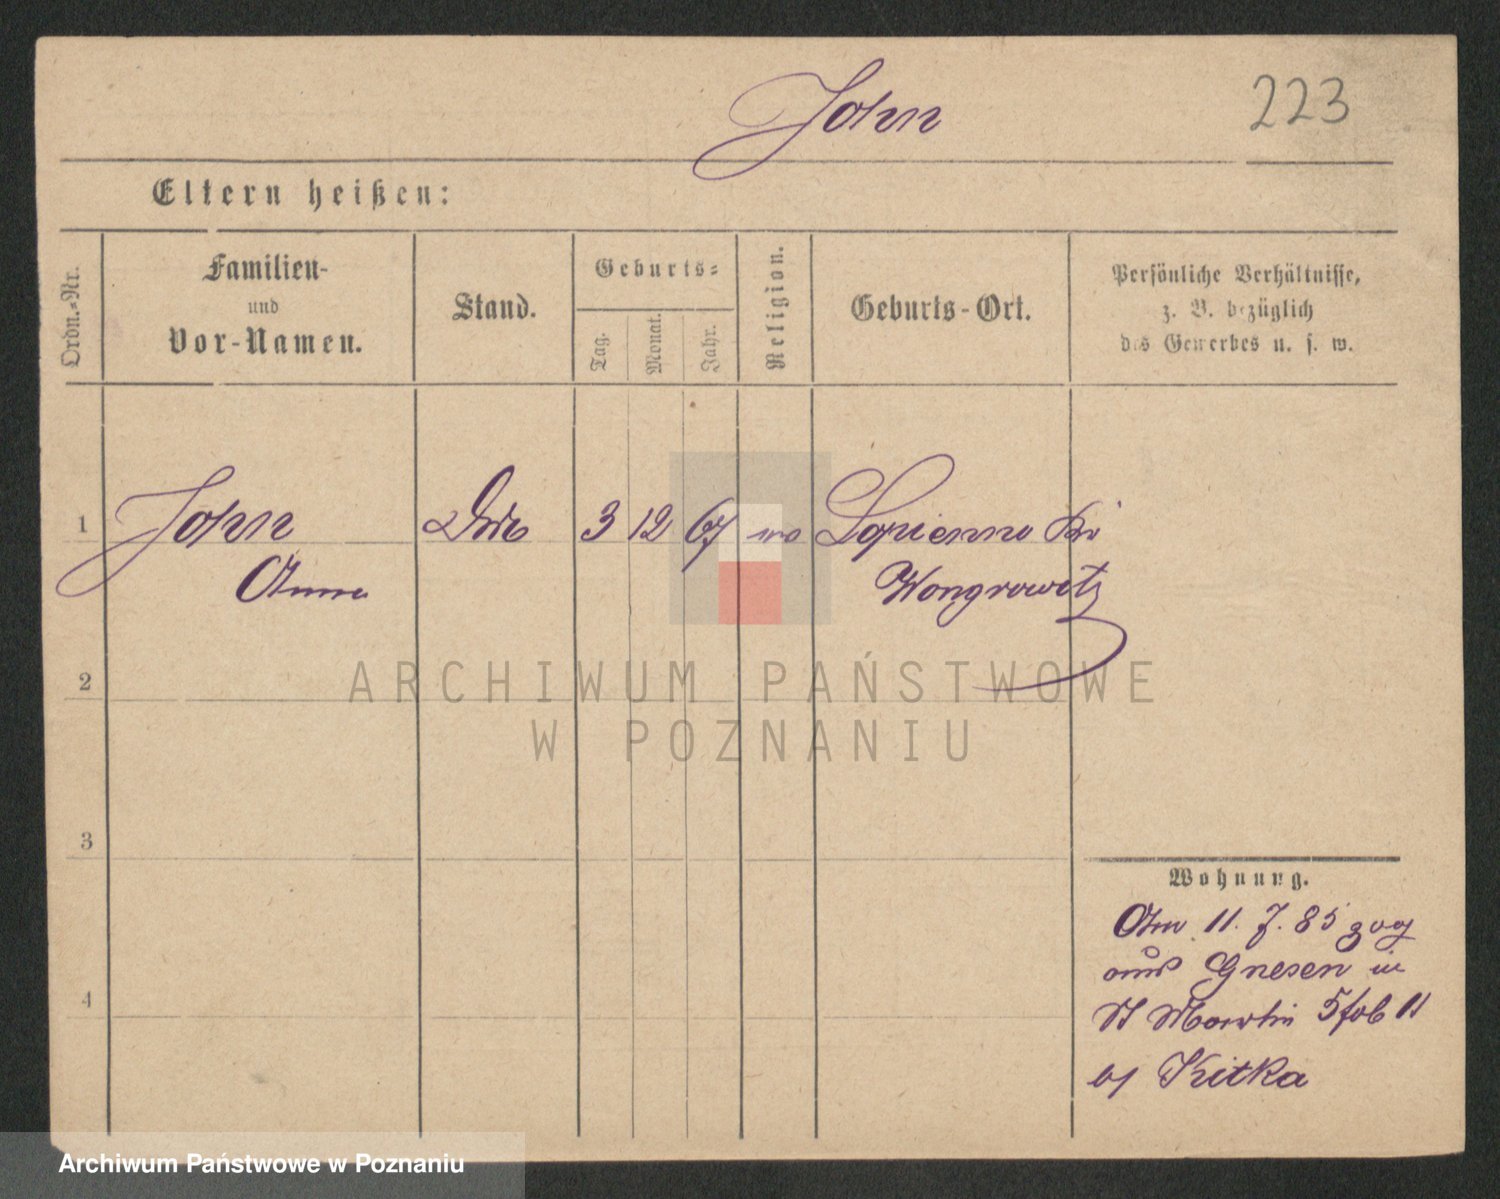 John
223
Eltern heißen:
Ordn.-Nr.
Familien-
und
Vor-Namen.
Stand.
Geburts-
Tag.
Monat.
Jahr.
Religion.
Geburts-Ort.
Persönliche Verhältnisse,
z. B. bezüglich
des Gewerbes u. s. w.
1 John 3 12 67 Lopienno Kr
Anna Wongrowitz
2
3
4
ARCHIWUM PAŃSTWOWE
W POZNANIU
Wohnung.
Am 11. 7. 85 zog
aus Gnesen in
St Martin 11
Kitka
Archiwum Państwowe w Poznaniu